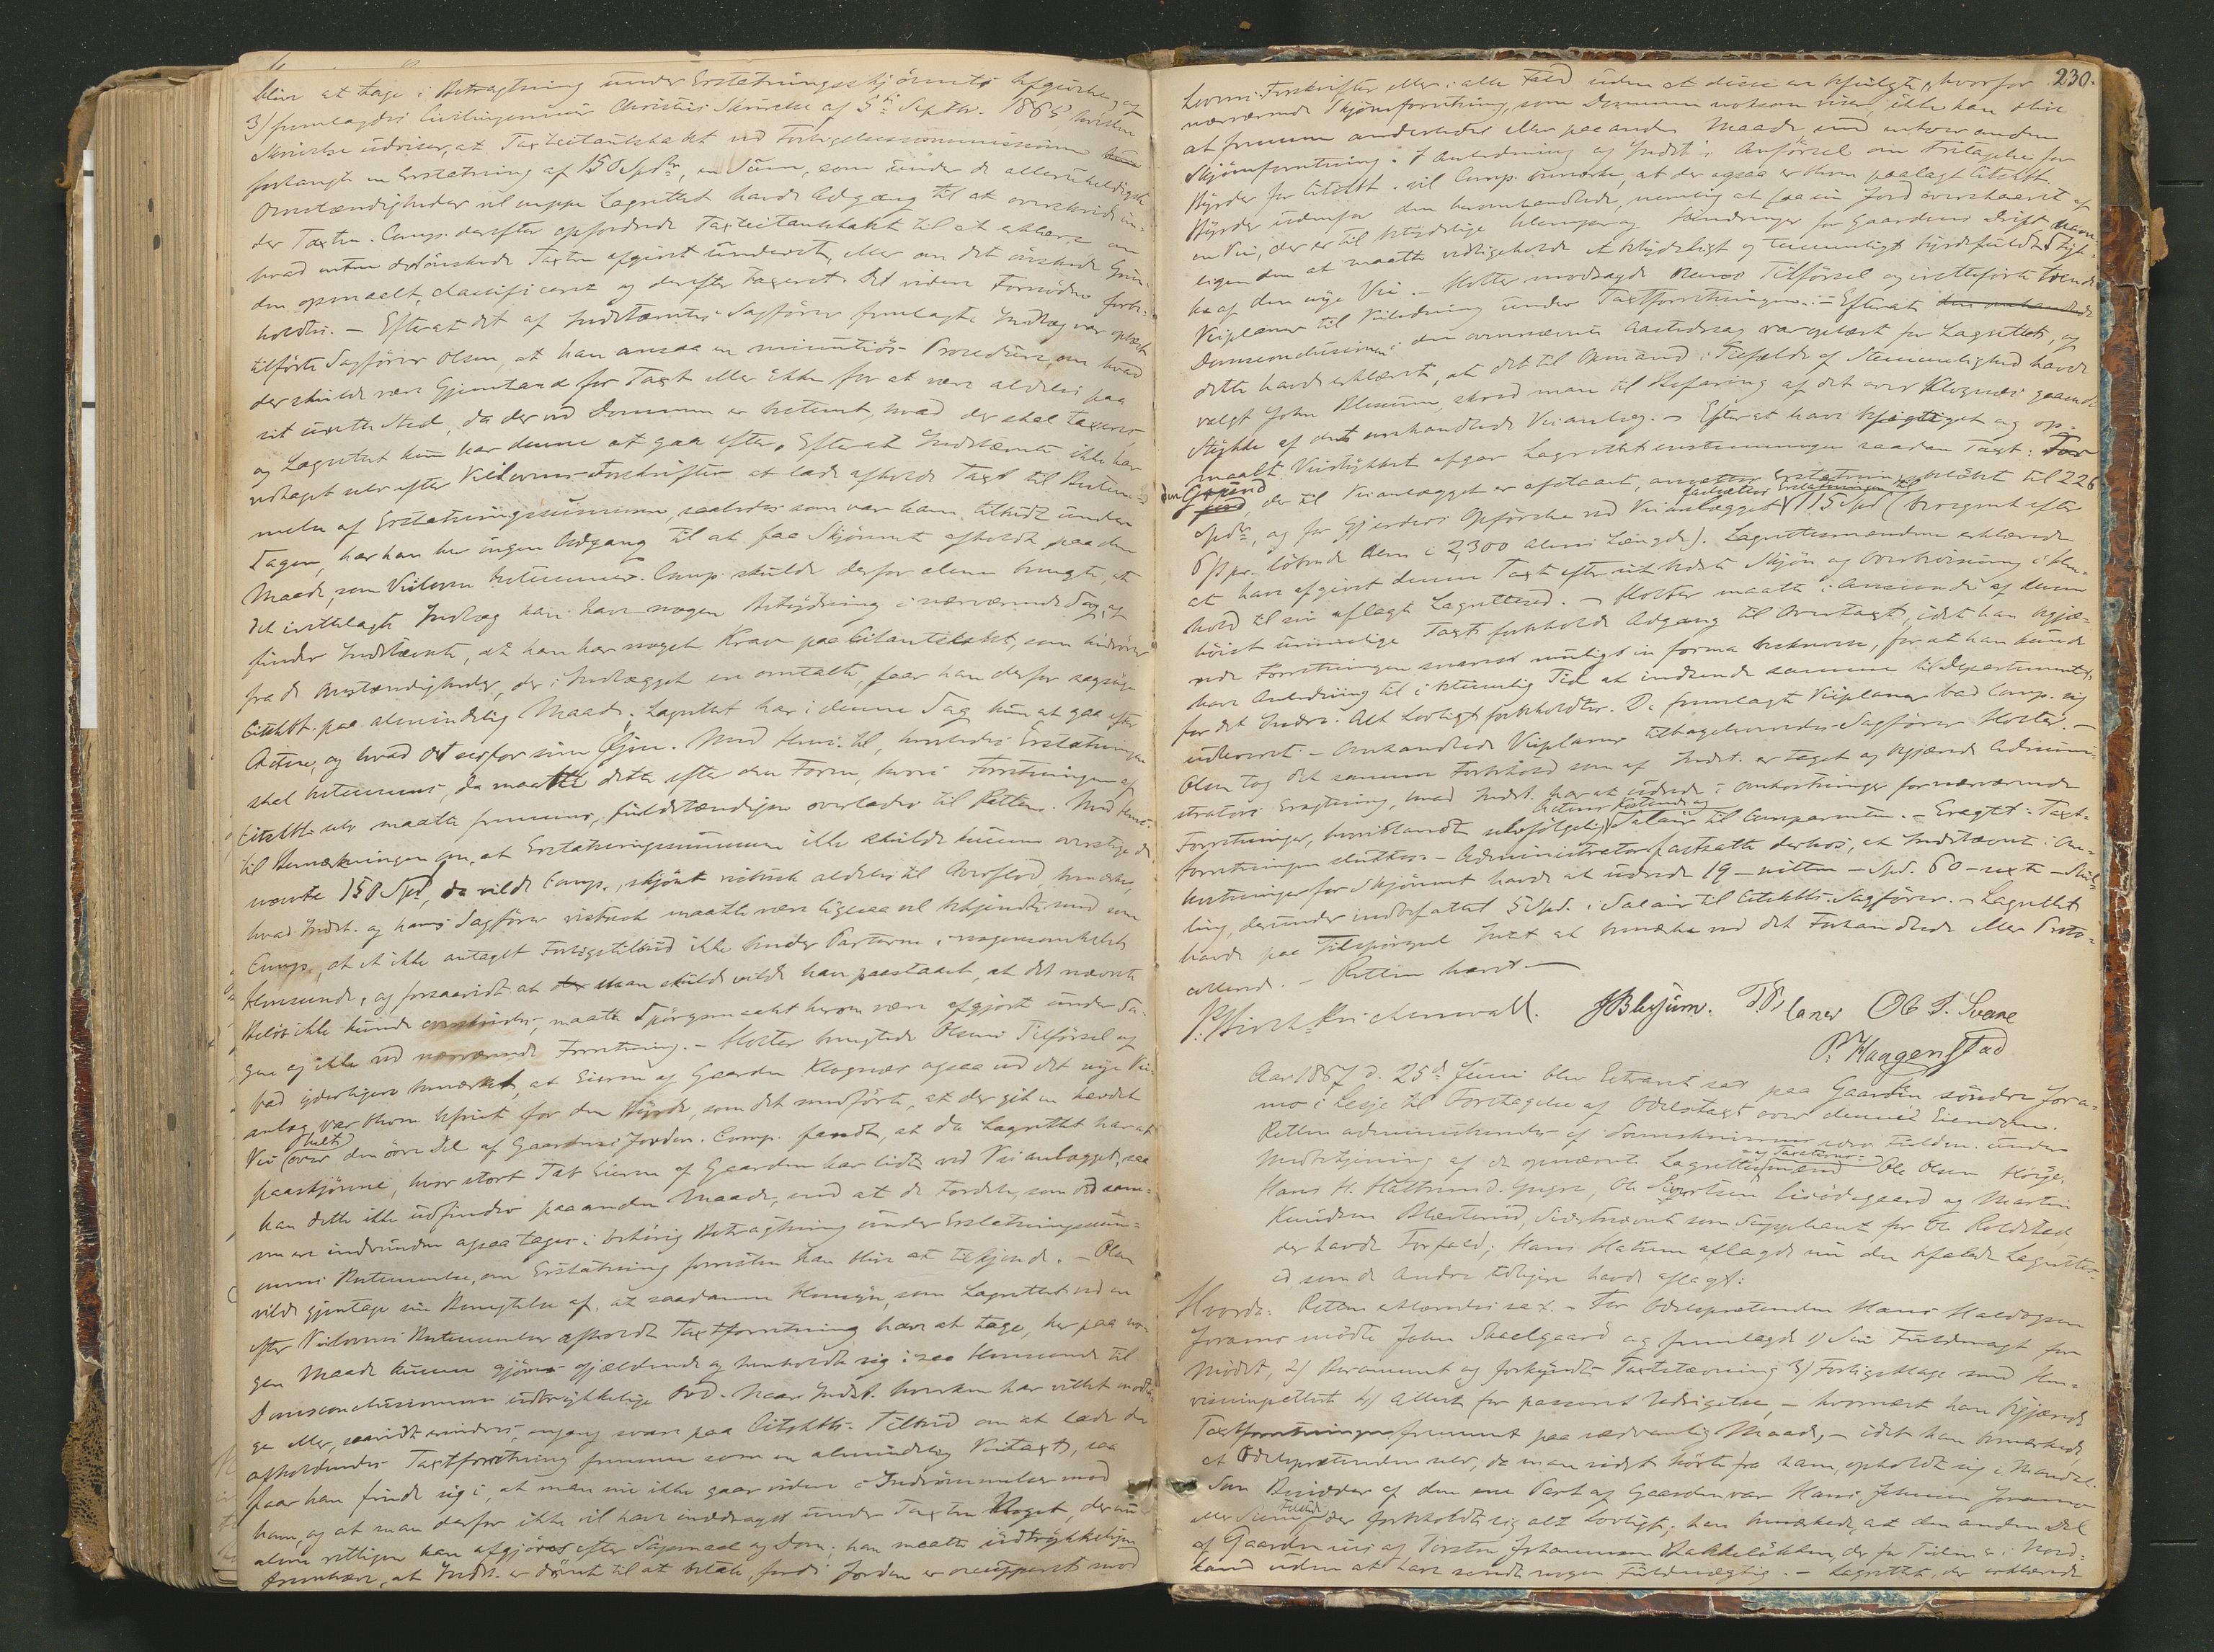 blive at tage i Betragtning under Erstatningsskjönnets Afgivelse, og
3) fremlagdes Civilingeniør Christies Skrivelse af 5te Septbr. 1865, hvilken
Skrivelse udviser, at Taxtcitantskabet ved Forligelsescommissionen
forlangte en Erstatning af 150 Spdr, en Sum, som under de alleruheldigste
Omstændigheder vel neppe Lagrettet havde Adgang til at overskride un-
der Taxten. Comp. derefter opfordrede Taxtcitantskabet til at erklære om
hvad enten det önskede Taxten afgivet underet, eller om det önskede Grun-
den opmaalt, classificeret og derefter taxeret. Det videre Fornödne forbe-
holdtes. – Efterat det af Indstævntes Sagförer fremlagte Indlæg var oplæst
tilförte Sagförer Olsen, at han ansaa en minutiös Procedure, om hvad
der skulde være Gjenstand for Taxt eller ikke for at være aldeles paa
sit urette Sted, da der ved Dommen er bestemt, hvad der skal taxeres,
og Lagrettet kun har denne at gaa efter. Efterat Indstævnte ikke har
vedtaget selv efter Veilovens Forskrifter at lade afholde Taxt til Bestem-
melse af Erstatningssummen, saaledes som var ham tilbudt under
Sagen, har han her ingen Adgang til at faa Skjönnet afholdt paa den
Maade, som Veiloven bestemmer. Comp. skulde derfor alene benegte, at
det irettelagte Indlæg kan have nogen Betydning i nærværende Sag, og
finder Indstævnte, at han har noget Krav paa Citantskabet, som hidrörer
fra de Omstændigheder, der i Indlægget ere omtalte, faar han derfor sagsöge
Citskbt. paa almindelig Maade; Lagrettet har i denne Sag kun at gaa efter
Acten, og hvad det ser for sine Öine. Med Hens. til, hvorledes Erstatningen
skal bestemmes, da maatte dette efter den Form, hvori Forretningen af
Citskbt. selv maatte fremmes, fuldstændigen overlades til Retten. Med Hens.
til Bemærkningen om, at Erstatningssummen ikke skulde kunne overstige de
nævnte 150 Spd, da vilde Comp., skjönt vistnok aldeles til Overflod, bemærke,
hvad Indst. og hans Sagförer vistnok maatte være ligesaa vel bekjendte med som
Comp., at et ikke antaget Forligstilbud ikke binder Parterne i nogensomhelst
Henseende, og forsaavidt at man skulde ville have paastaaet, at det nævnte
Belöb ikke kunde overskrides, maatte Spörgsmaalet herom være afgjort under Sa-
gen og ikke ved nærværende Forretning. – Holter benegtede Olsens Tilförsel og
bad yderligere bemærket, at Eieren af Gaarden Klognæs ogsaa ved det nye Vei-
anlæg var bleven befriet for den Byrde, som det medförte, at der gik en hævdet
Vei (helt) over den övre Del af Gaardens Jorder. Comp. fandt, at da Lagrettet har at
paaskjönne, hvor stort Tab Eieren af Gaarden har lidt ved Veianlægget, saa
kan dette ikke udfindes paa anden Maade, end at de Fordele, som ved sam-
me ere indvundne ogsaa tages i behörig Betragtning under Erstatningssum-
mens Bestemmelse, om Erstatning forresten kan blive at tilkjende. – Olsen
vilde gjentage sin Benegtelse af, at saadanne Hensyn, som Lagrettet ved en
efter Veilovens Bestemmelser afholdt Taxtforretning havde at tage, her paa no-
gen Maade kunne gjöres gjældende og henholdt sig i saa Henseende til
Domsconclusionens udtrykkelige Ord. Naar Indst. hverken har villet modta-
ge eller, saavidt erindres, engang svare paa Citskbts. Tilbud om at lade den
afholdendes Taxtforretning fremme som en almindelig Veitaxt, saa
faar han finde sig i, at man nu ikke gaar videre i Indrömmelser mod
ham, og at man derfor ikke vil have inddraget under Taxten Noget, der nu
alene rettigen kan afgjöres efter Sögsmaal og Dom; han maatte udtrykkeligen
fremhæve, at Indst. er dömt til at betale, fordi Jorden er occupperet mod
230.
Lovens Forskrifter eller i alle Fald uden at disse ere befulgte, hvorfor
nærværende Skjönsforretning, som Dommen noksom viser, ikke kan blive
at fremme anderledes eller paa anden Maade end enhver anden
Skjönsforretning. I Anledning af Indst.s Anförsel om Fritagelse for
Byrder for Citskbt. vil Comp. bemærke, at der ogsaa er ham paalagt Citskbt.
Byrder udenfor den heromhandlede, nemlig at faa sin Jord overskaaret af
en Vei, der er til betydelige Ulemper og Hindringer for Gaardens Drift navn-
ligen den at maatte vedligeholde et betydeligt og temmeligt byrdefuldt Styk-
ke af den nye Vei. – Holter modsagde Olsens Tilförsel og iretteförte tvende
Veiplaner til Veiledning under Taxtforretningen. – Efterat
Domsconclusionen i den ovennævnte Aastedssag var oplæst for Lagrettet, og
dette havde erklæret, at det til Opmand i Tilfælde af Stemmelighed havde
valgt John Blessum, skred man til Befaring af det over Klognæs gaaende
Stykke af det omhandlede Veianlæg. – Efter at have besigtiget og op-
maalt Veistykket afgav Lagrettet enstemmigen saadan Taxt: For
den Grund, der til Veianlægget er afstaaet, ansættes Erstatningsbelöbet til 226
Spdr, og for Gjerders Opförelse ved Veianlægget fastsættes Erstatningen til 115 Spd (beregnet efter
6 ß pr. löbende Alen i 2,300 Alens Længde). Lagrettesmændene erklærede
at have afgivet denne Taxt efter sit bedste Skjön og Overbevisning i Hen-
hold til sin aflagte Lagretteed. – Holter maatte i Anseende af denne
höist urimelige Taxt forbeholde Adgang til Overtaxt, idet han begjæ-
rede Forretningen snarest muligst in forma beskreven, for at han kunde
have Anledning til i betimelig Tid at indsende samme til Departementet
for det Indre. Alt Lovligt forbeholdtes. De fremlagte Veiplaner bad Comp. sig
udleveret. – Omhandlede Veiplaner tilbageleveredes Sagförer Holter. –
Olsen tog det samme Forbehold som af Indst. er taget og begjærede Admini-
strators Eragtning, hvad Indst. har at udrede i Omkostninger for nærværende
Forretninger, hvoriblandt selvfölgelig Actens Kostende og Salair til Comparenten. – Eragtet: Taxt-
forretningen sluttes. – Administrator fastsatte derhos, at Indstævnte i Om-
kostninger for Skjönnet havde at udrede 19 – nitten – Spd. 60 – sexti – Skil-
ling, derunder indbefattet 5 Spd. i Salair til Citskbts. Sagförer. – Lagrettet
havde paa Tilspörgsel Intet at bemærke ved det Forhandlede eller Proto-
collerede. – Retten hævet –
P. Birch-Reichenwald. JBlessum. Ole P. Svare
P. Haagenstad
Aar 1867 d. 25de Juni blev Extraret sat paa Gaarden söndre Jora-
mo i Lesje til Foretagelse af Odelstaxt over denne Eiendom.
Retten administreredes af Sorenskriveren under
Medbetjening af de opnævnte Lagrettesmænd og Taxtmænd: Ole Olsen
Hans H. Hattrem d. Yngre, Ole Lisödegaard og Martin
Knudsen, Sidstnævnte som Suppleant for Ole
der havde Forfald; Hans Hatrem aflagde nu den befalede Lagrette-
ed som de Andre tidligere havde aflagt:
Hvorda: Retten erklæredes sat. – For Odelsprætendenten Hans Haldorsen
Joramo mödte John Skaelgaard og fremlagde 1) Sin Fuldmagt for
Mödet, 2) Berammet og forkyndt Taxtstævning 3) Forligsklage med Hen-
visningsattest 4) Attest for passeret Udsigelse, – hvornæst han begjærede
Taxtforretningen fremmet paa sædvanlig Maade, – idet han bemærkede,
at Odelsprætendenten selv, da man sidst hörte fra ham, opholdt sig i Mandal.
Som Besidder af den ene Part af Gaarden var Hans Johnsen Joramo
tilstede, der forbeholdt sig alt Lovligt; han bemærkede, at den anden Del
af Gaarden eies af Torsten Johannesen Bakkelökken, der for Tiden er i Nord-
land uden at have sendt nogen Fuldmægtig. – Lagrettet, der erklærede